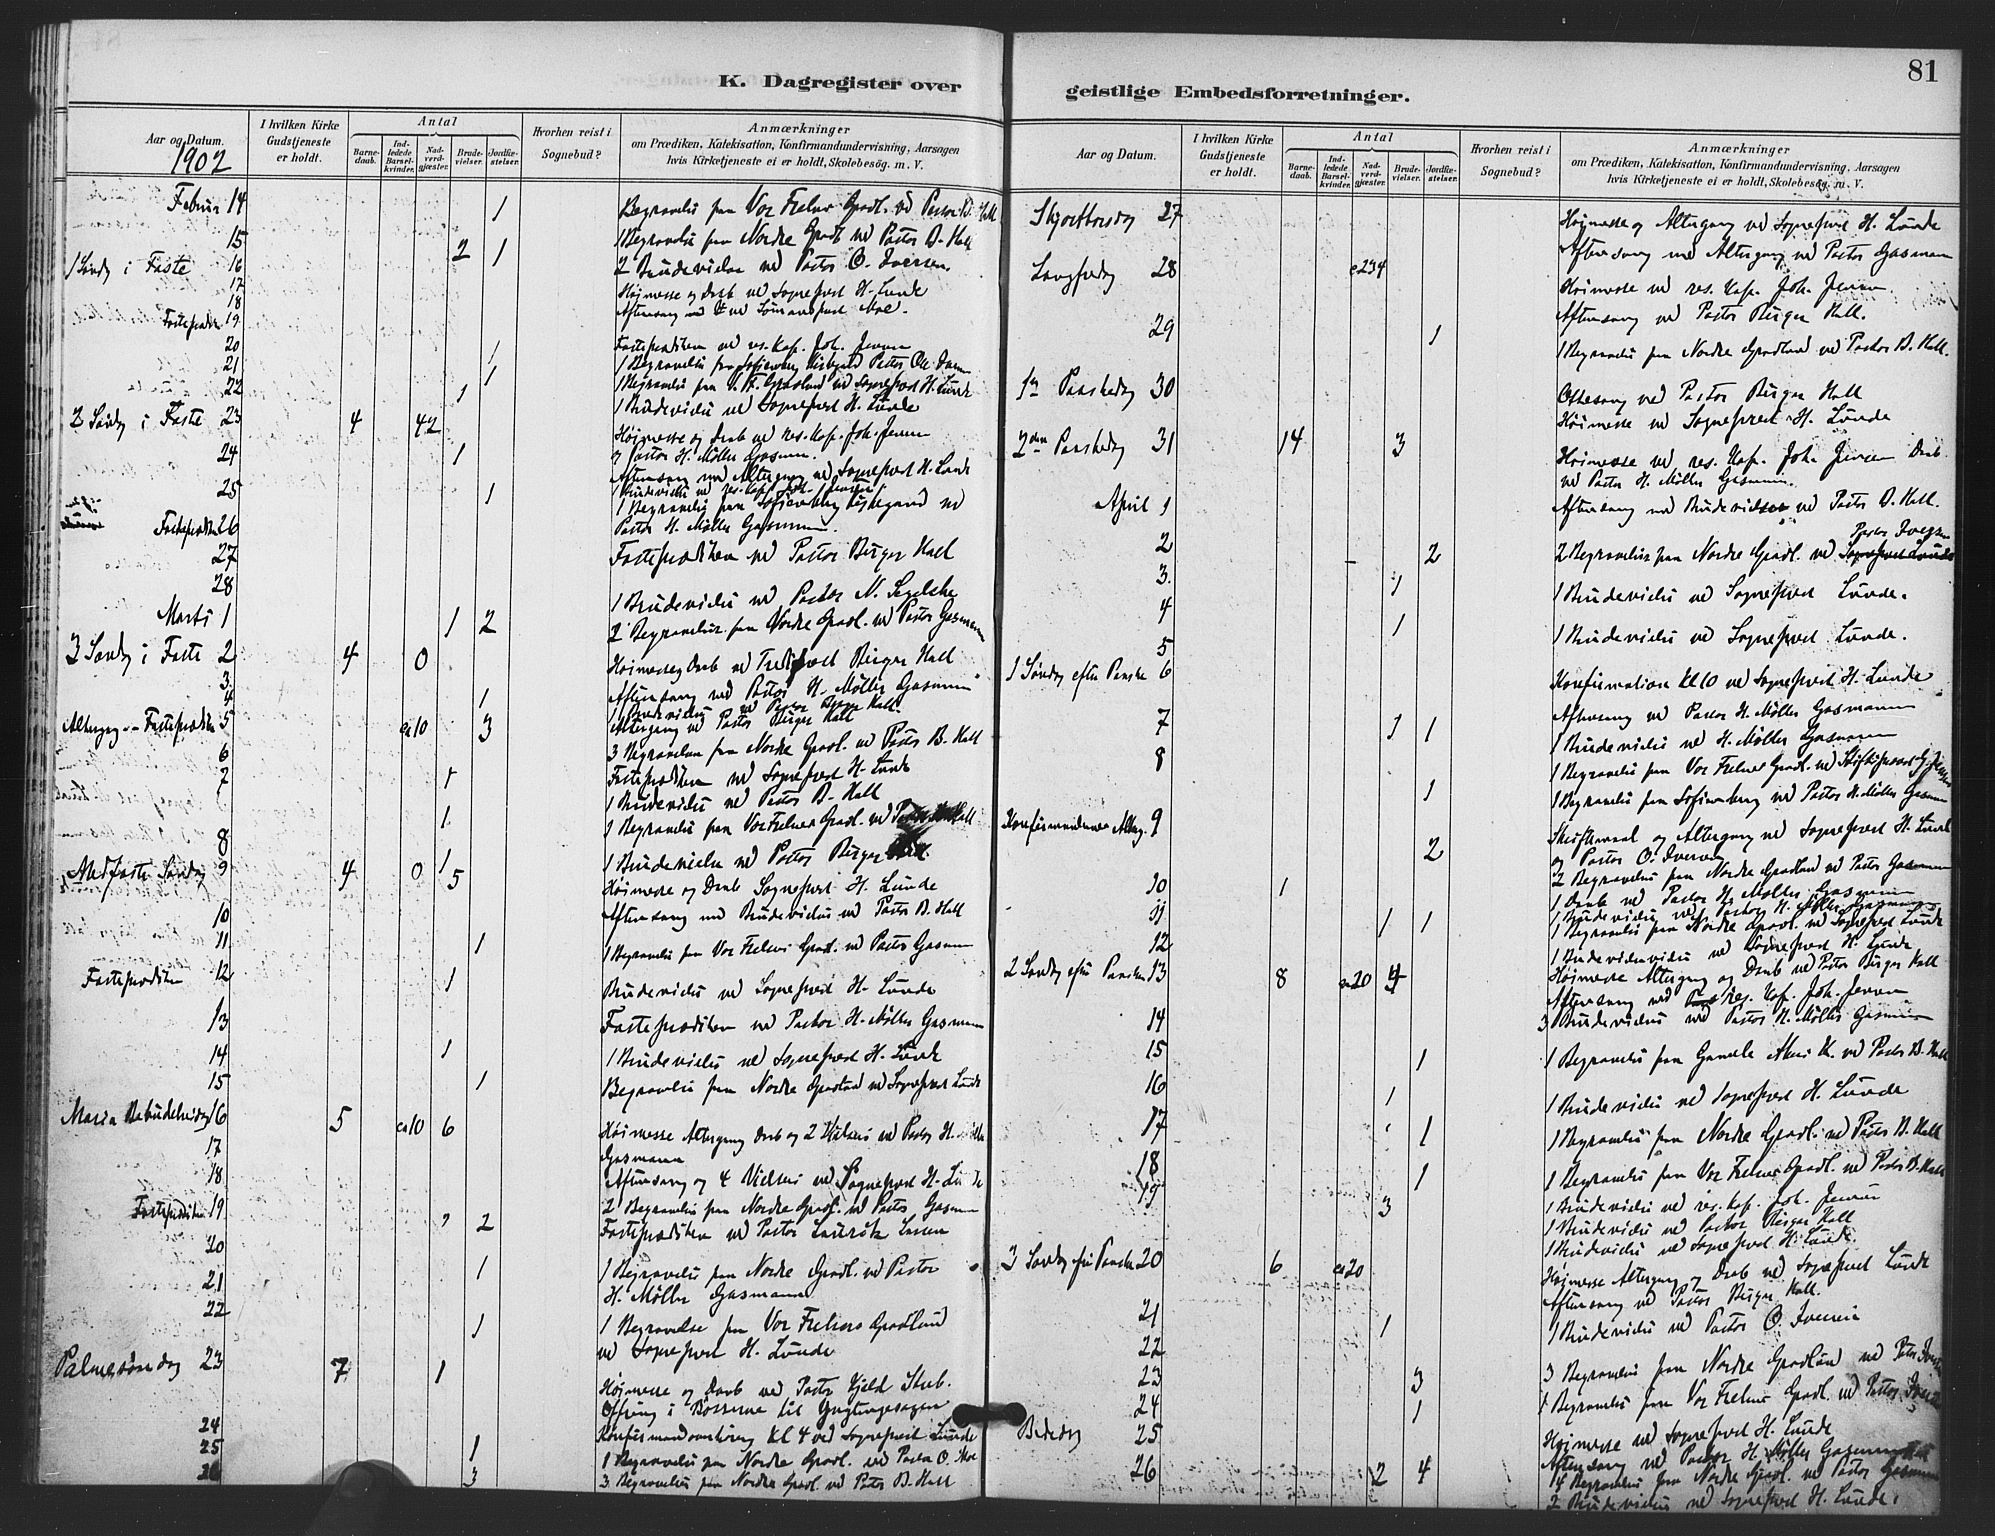 81
K. Dagregister over
geistlige Embedsforretninger.
Aar og Datum.
I hvilken Kirke Gudstjeneste er holdt.
Antal
Barne-daab.
Ind-ledede Barsel-kvinder.
Nad-verd-gjæster.
Brude-vielser.
Jordfæ-stelser.
Hvorhen reist i Sognebud?
Anmærkninger
om Prædiken, Katekisation, Konfirmandundervisning, Aarsagen
hvis Kirketjeneste ei er holdt, Skolebesøg. m. V.
1902
Februar 14 1 Begravelse fra Vor Frelsers Gravl. ved Pastor B. Hall
15 2 1 1 Begravelse fra Nordre Gravl. ved Pastor B. Hall
1 Søndg i Faste 16 2 Brudevielser ved Pastor O. Iversen.
17 Høimesse og Daab ved Sogneprest H. Lunde
18 Aftensang
Fasteprædiken 19
20 Fasteprædiken ved res. Kap. Joh. Jensen 1
21 1
22 1 1 Begravelse fra V. Fr. Gravlund ved Sogneprest H. Lunde
2 Søndg i Faste 23 4 42 1 Brudevielse ved Sogneprest H. Lunde
Høimesse og Daab ved res. Kap. Joh. Jensen
24 1 og Pastor H. Møller Gasmann.
Aftensang med Altergang ved Sogneprest H. Lunde
25 1 1 Brudevielse ved res. Kap. Joh. Jensen
Pastor H. Møller Gasmann.
Fasteprædiken 26
27 Fasteprædiken ved Pastor Birger Hall
28
1 Brudevielse ved Pastor N.
Marts 1 1 2 2 Begravelser fra Nordre Gravl. ved Pastor Gasmann
3 Søndg i Faste 2 4 0 Høimesse og Daab ved Birger Hall
3 Aftensang ved Pastor H. Møller Gasmann
4 1 1 Brudevielse ved Pastor Birger Hall
Altergang Fasteprædiken 5 ca 10 3 Altergang ved Pastor Birger Hall
3 Begravelser fra Nordre Gravl. ved Pastor B. Hall
6 Fasteprædiken ved Sogneprest H. Lunde
7 1 1 Brudevielse ved Pastor B. Hall
1 1 Begravelse fra Vor Frelsers Gravl. ved Hall
8 1 Brudevielse ved Pastor Birger Hall.
Midfaste Søndag 9 4 0 1 5 Høimesse og Daab Sogneprest H. Lunde
10 Aftensang med Brudevielser ved Pastor B. Hall
11 1 1 Begravelse fra Vor Frelsers Gravl. ved Pastor Gasmann
Fasteprædiken 12 1 Brudevielse ved Sogneprest H. Lunde
13 Fasteprædiken ved Pastor H. Møller Gasmann
14 1 1 Brudevielse ved Sogneprest H. Lunde
15 1 Begravelse fra Nordre Gravlund ved Sogneprest Lunde
Maria Bebudelsesdag 16 5 ca 10 6 Høimesse Altergang Daab og 2 Vielser ved Pastor H. Møller
17 Gasmann
18 Aftensang og 4 Vielser ved Sogneprest H. Lunde
Fasteprædiken 19 2 2 Begravelser fra Nordre Gravl. ved Pastor Gasmann
Fasteprædiken ved Pastor
20 1 1 Begravelse fra Nordre Gravl. ved Pastor
21 H. Møller Gasmann
22 1 1 Begravelse fra Vor Frelsers Gravlund
ved Sogneprest H. Lunde
Palmesøndag 23 7 1 Høimesse og Daab ved Pastor Kjeld Stub.
Offring i Bøsserne til Ynglingesagen
24 Konfirmandoverhøring kl 4 ved Sogneprest Lunde
25 1 1 Begravelse fra Nordre Gravl. ved Pastor O.
26 3 3 Begravelser fra Nordre Gravl. ved Pastor B. Hall
Aar og Datum.
I hvilken Kirke Gudstjeneste er holdt.
Antal
Barne-daab.
Ind-ledede Barsel-kvinder.
Nad-verd-gjæster.
Brude-vielser.
Jordfæ-stelser.
Hvorhen reist i Sognebud?
Anmærkninger
om Prædiken, Katekisation, Konfirmandundervisning, Aarsagen
hvis Kirketjeneste ei er holdt, Skolebesøg. m. V.
Skjærthorsdag 27 Høimesse og Altergang ved Sogneprest H. Lunde
Aftensang med Altergang ved Pastor Gasmann
Langfredag 28 c 234 Høimesse ved res. Kap. Joh. Jensen.
Aftensang ved Pastor Birger Hall.
29 1 1 Begravelse fra Nordre Gravlund ved Pastor B. Hall.
1ste Paaskedag 30 Ottesang ved Pastor Birger Hall
Høimesse ved Sogneprest H. Lunde
2den Paaskedag 31 14 3 Høimesse ved res. Kap. Joh. Jensen Daab
ved Pastor H. Møller Gasmann.
April 1 Aftensang med Brudevielser ved Pastor B. Hall.
Pastor Iversen
2 2 2 Begravelser fra Nordre Gravl. ved Sogneprest Lunde
3 1 1 Brudevielse ved Sogneprest Lunde.
4 1 1 Brudevielse ved Sogneprest Lunde.
5
1 Søndag efter Paaske 6 Konfirmation kl 10 ved Sogneprest H. Lunde
Aftensang ved Pastor H. Møller Gasmann
7 1 1 1 Brudevielse ved H. Møller Gasmann
8 1 Begravelse fra Vor Frelsers Gravl. ved Stiftsprovst G. Jensen
1 1 Begravelse fra Sofienberg ved Pastor H. Møller Gasmann
Konfirmandernes Alterg. 9 Skriftemaal og Altergang ved Sogneprest H. Lunde
og Pastor O. Iversen
2 2 Begravelser fra Nordre Gravlund ved Pastor Gasmann
10 1 1 Daab ved Pastor H. Møller Gasmann
1 Brudevielse ved Pastor H. Møller Gasmann
11 1 1 1 Begravelse fra Nordre Gravl. ved Sogneprest Lunde
12 1 Brudevielse ved Sogneprest H. Lunde
2 Søndg efter Paaske 13 8 ca 20 4 Høimesse Altergang og Daab ved Pastor Birger Hall
Aftensang ved res. Kap. Joh. Jensen
14 3 Brudevielser ved Pastor H. Møller Gasmann
15 1 1 Begravelse fra Gamle Akers K. ved Pastor B. Hall
16 1 1 Brudevielse ved Sogneprest H. Lunde
17 1 1 Begravelse fra Nordre Gravl. ved Pastor B. Hall
18 1 1 Begravelse fra Vor Frelsers Gravl. ved Pastor B. Hall
19 3 1 Brudevielse ved res. Kap. Joh. Jensen
1 Brudevielse ved Pastor Birger Hall
1 Brudevielse ved Sogneprest H. Lunde
3 Søndg efter Paaske 20 6 ca 20 Høimesse Altergang og Daab ved Sogneprest Lunde
Aftensang ved Pastor Birger Hall.
21 1 1 Brudevielse ved Pastor O. Iversen
22
23 3 3 Begravelser fra Nordre Gravlund ved Pastor Iversen
24 1 1 Begravelse fra Vor Frelsers Gravl. ved Pastor Iversen
Bededag 25 Høimesse ved Sogneprest H. Lunde
Aftensang ved Pastor H. Møller Gasmann
26 2 4 4 Begravelser fra Nordre Gravl. ved Pastor Gasmann
2 Brudevielser ved Sogneprest H. Lunde.